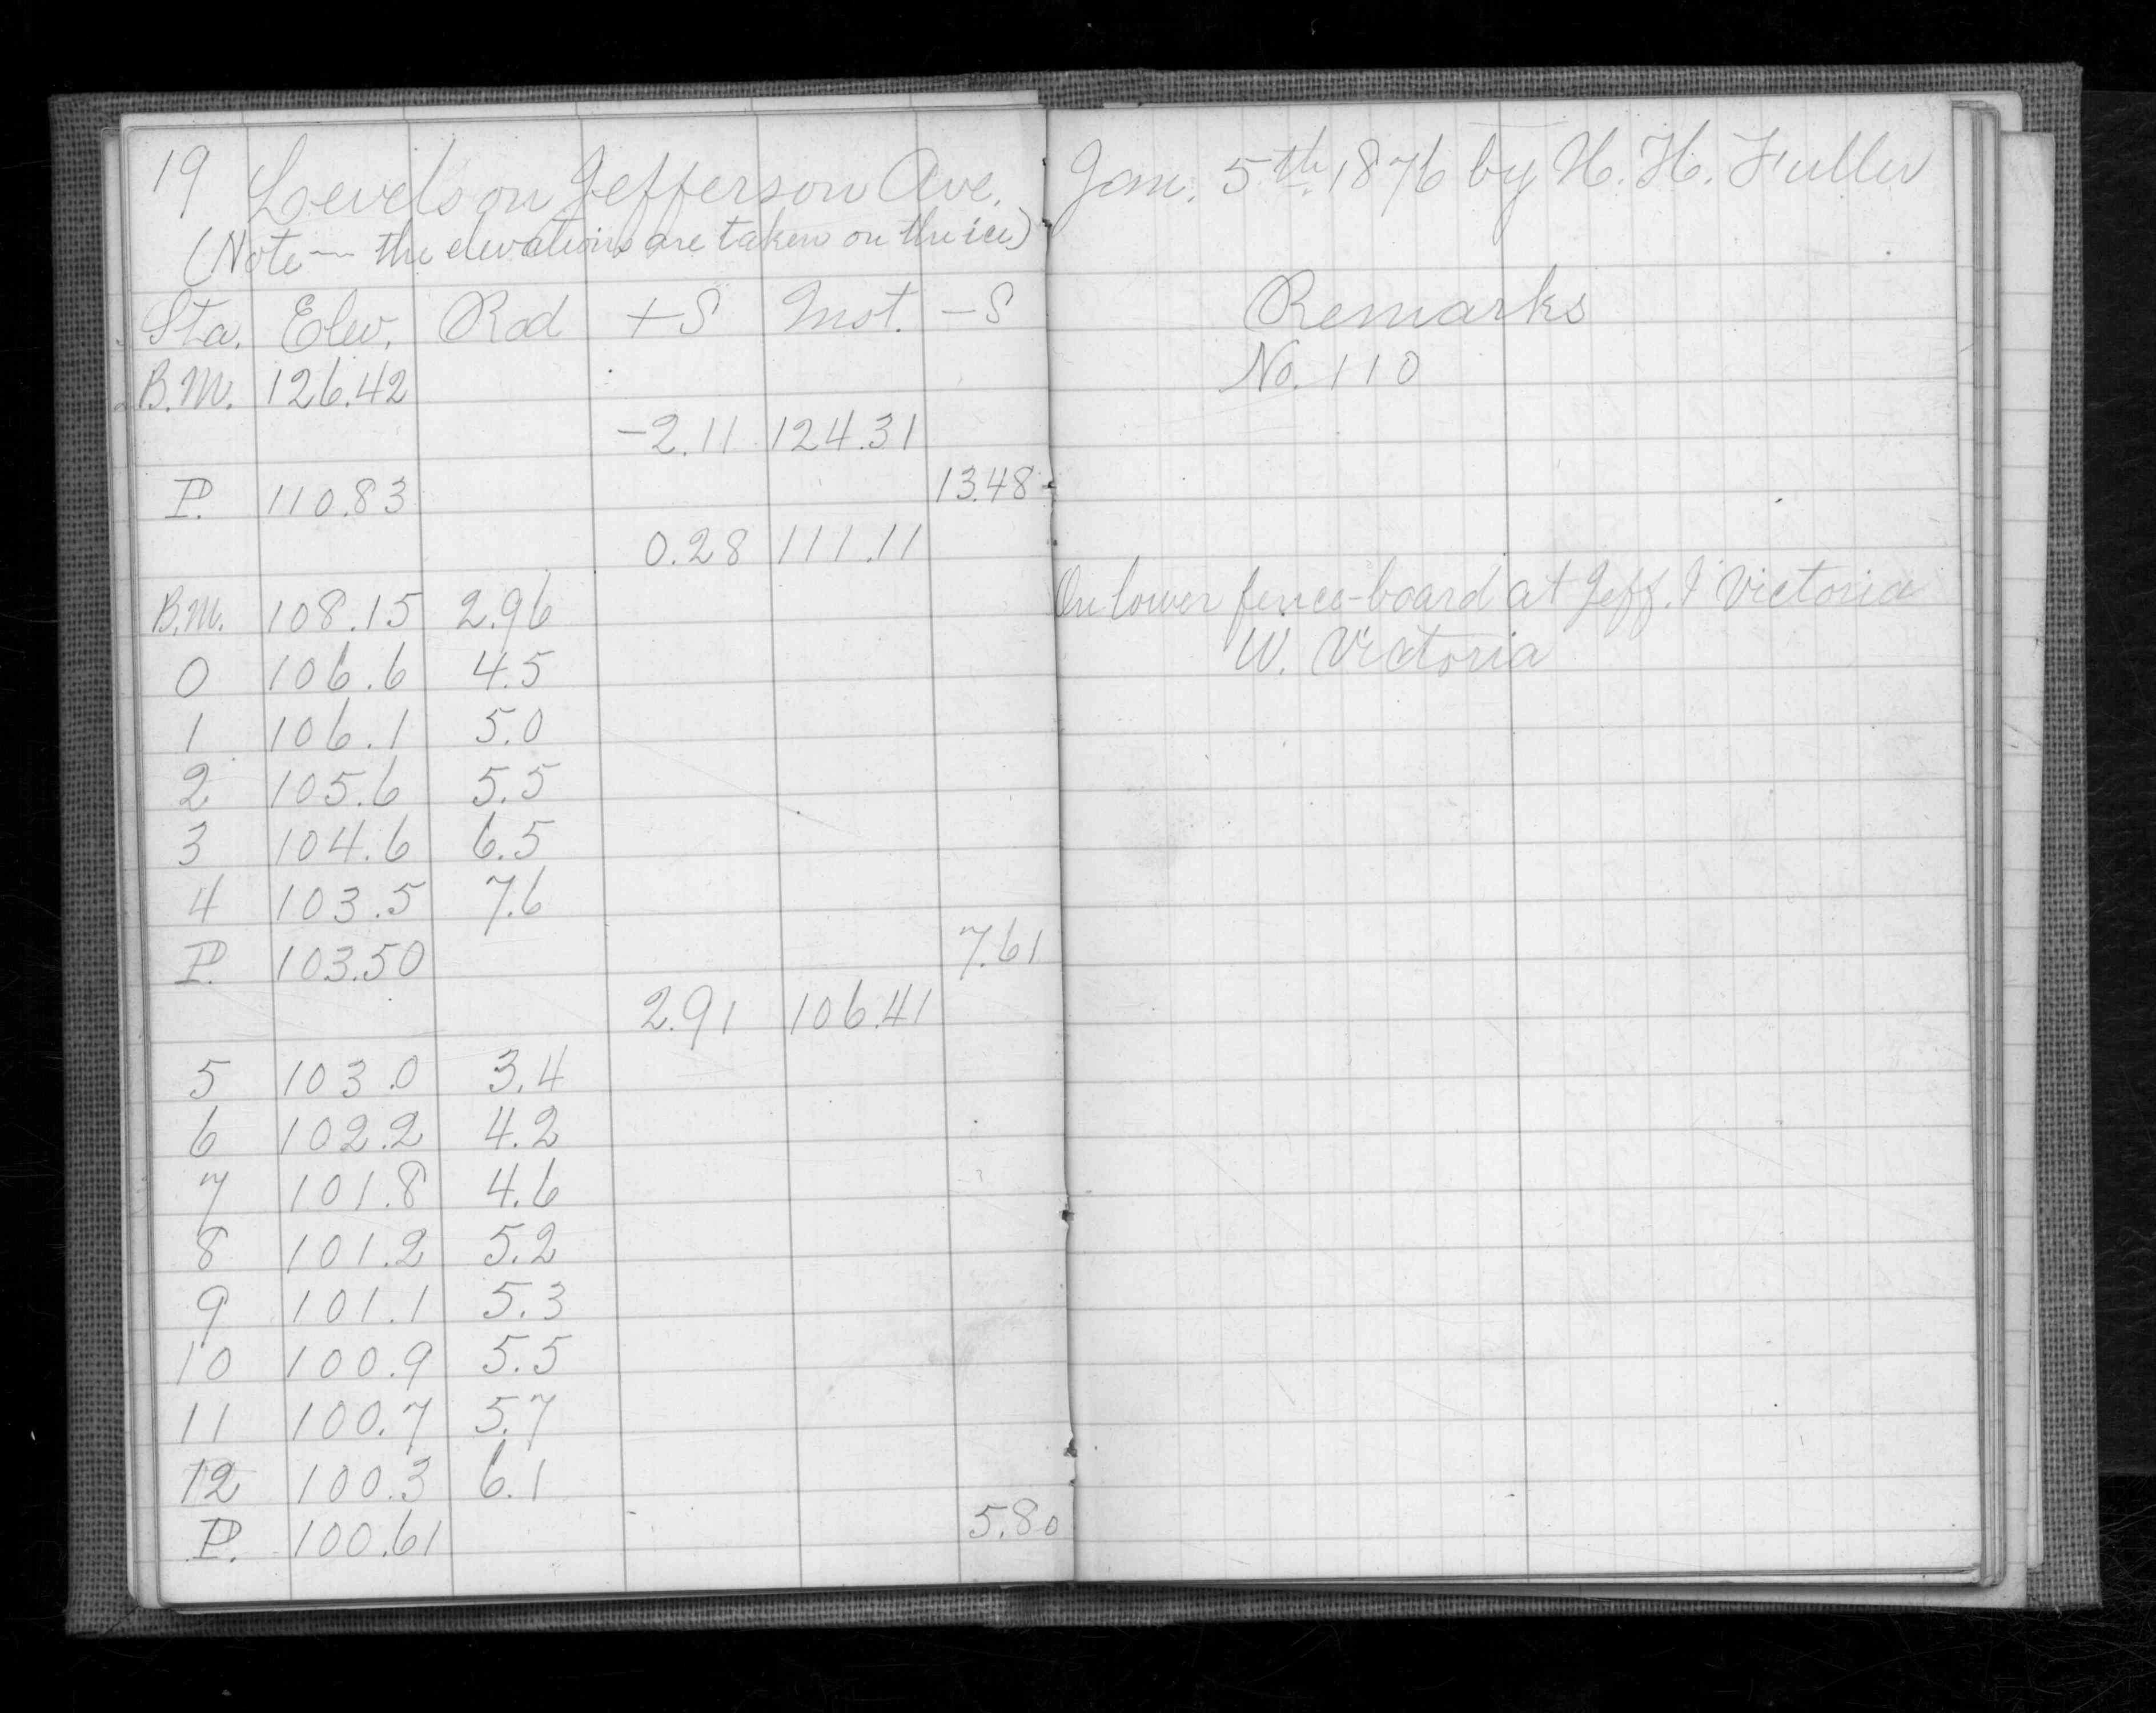 19 Levels on Jefferson Ave. Jan. 5th 1876 by H. H. Fuller
(Note — the elevations are taken on the ice)
Sta. Elev. Rod +S Inst. -S Remarks
B.M. 126.42 No. 110
-2.11 124.31
P. 110.83 13.48
0.28 111.11
B.M. 108.15 2.96 On lower fence-board at Jeff. & Victoria
0 106.6 4.5 W. Victoria
1 106.1 5.0
2 105.6 5.5
3 104.6 6.5
4 103.5 7.6
P. 103.50 7.61
2.91 106.41
5 103.0 3.4
6 102.2 4.2
7 101.8 4.6
8 101.2 5.2
9 101.1 5.3
10 100.9 5.5
11 100.7 5.7
12 100.3 6.1
P. 100.61 5.80